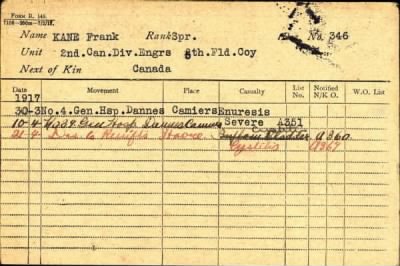 FORM R. 149.
Name KANE Frank Rank Spr. No. 346
Unit 2nd.Can.Div.Engrs 5th.Fld.Coy
Next of Kin Canada
Date Movement Place Casualty List No. Notified N/K O. W.O. List
1917
30-3 No.4.Gen.Hsp.Dannes Camiers Enuresis
10-4 Gen Hosp Dannes Camiers Severe A351
21-4 Dis. to Havre Bladder A360
Cystitis A367